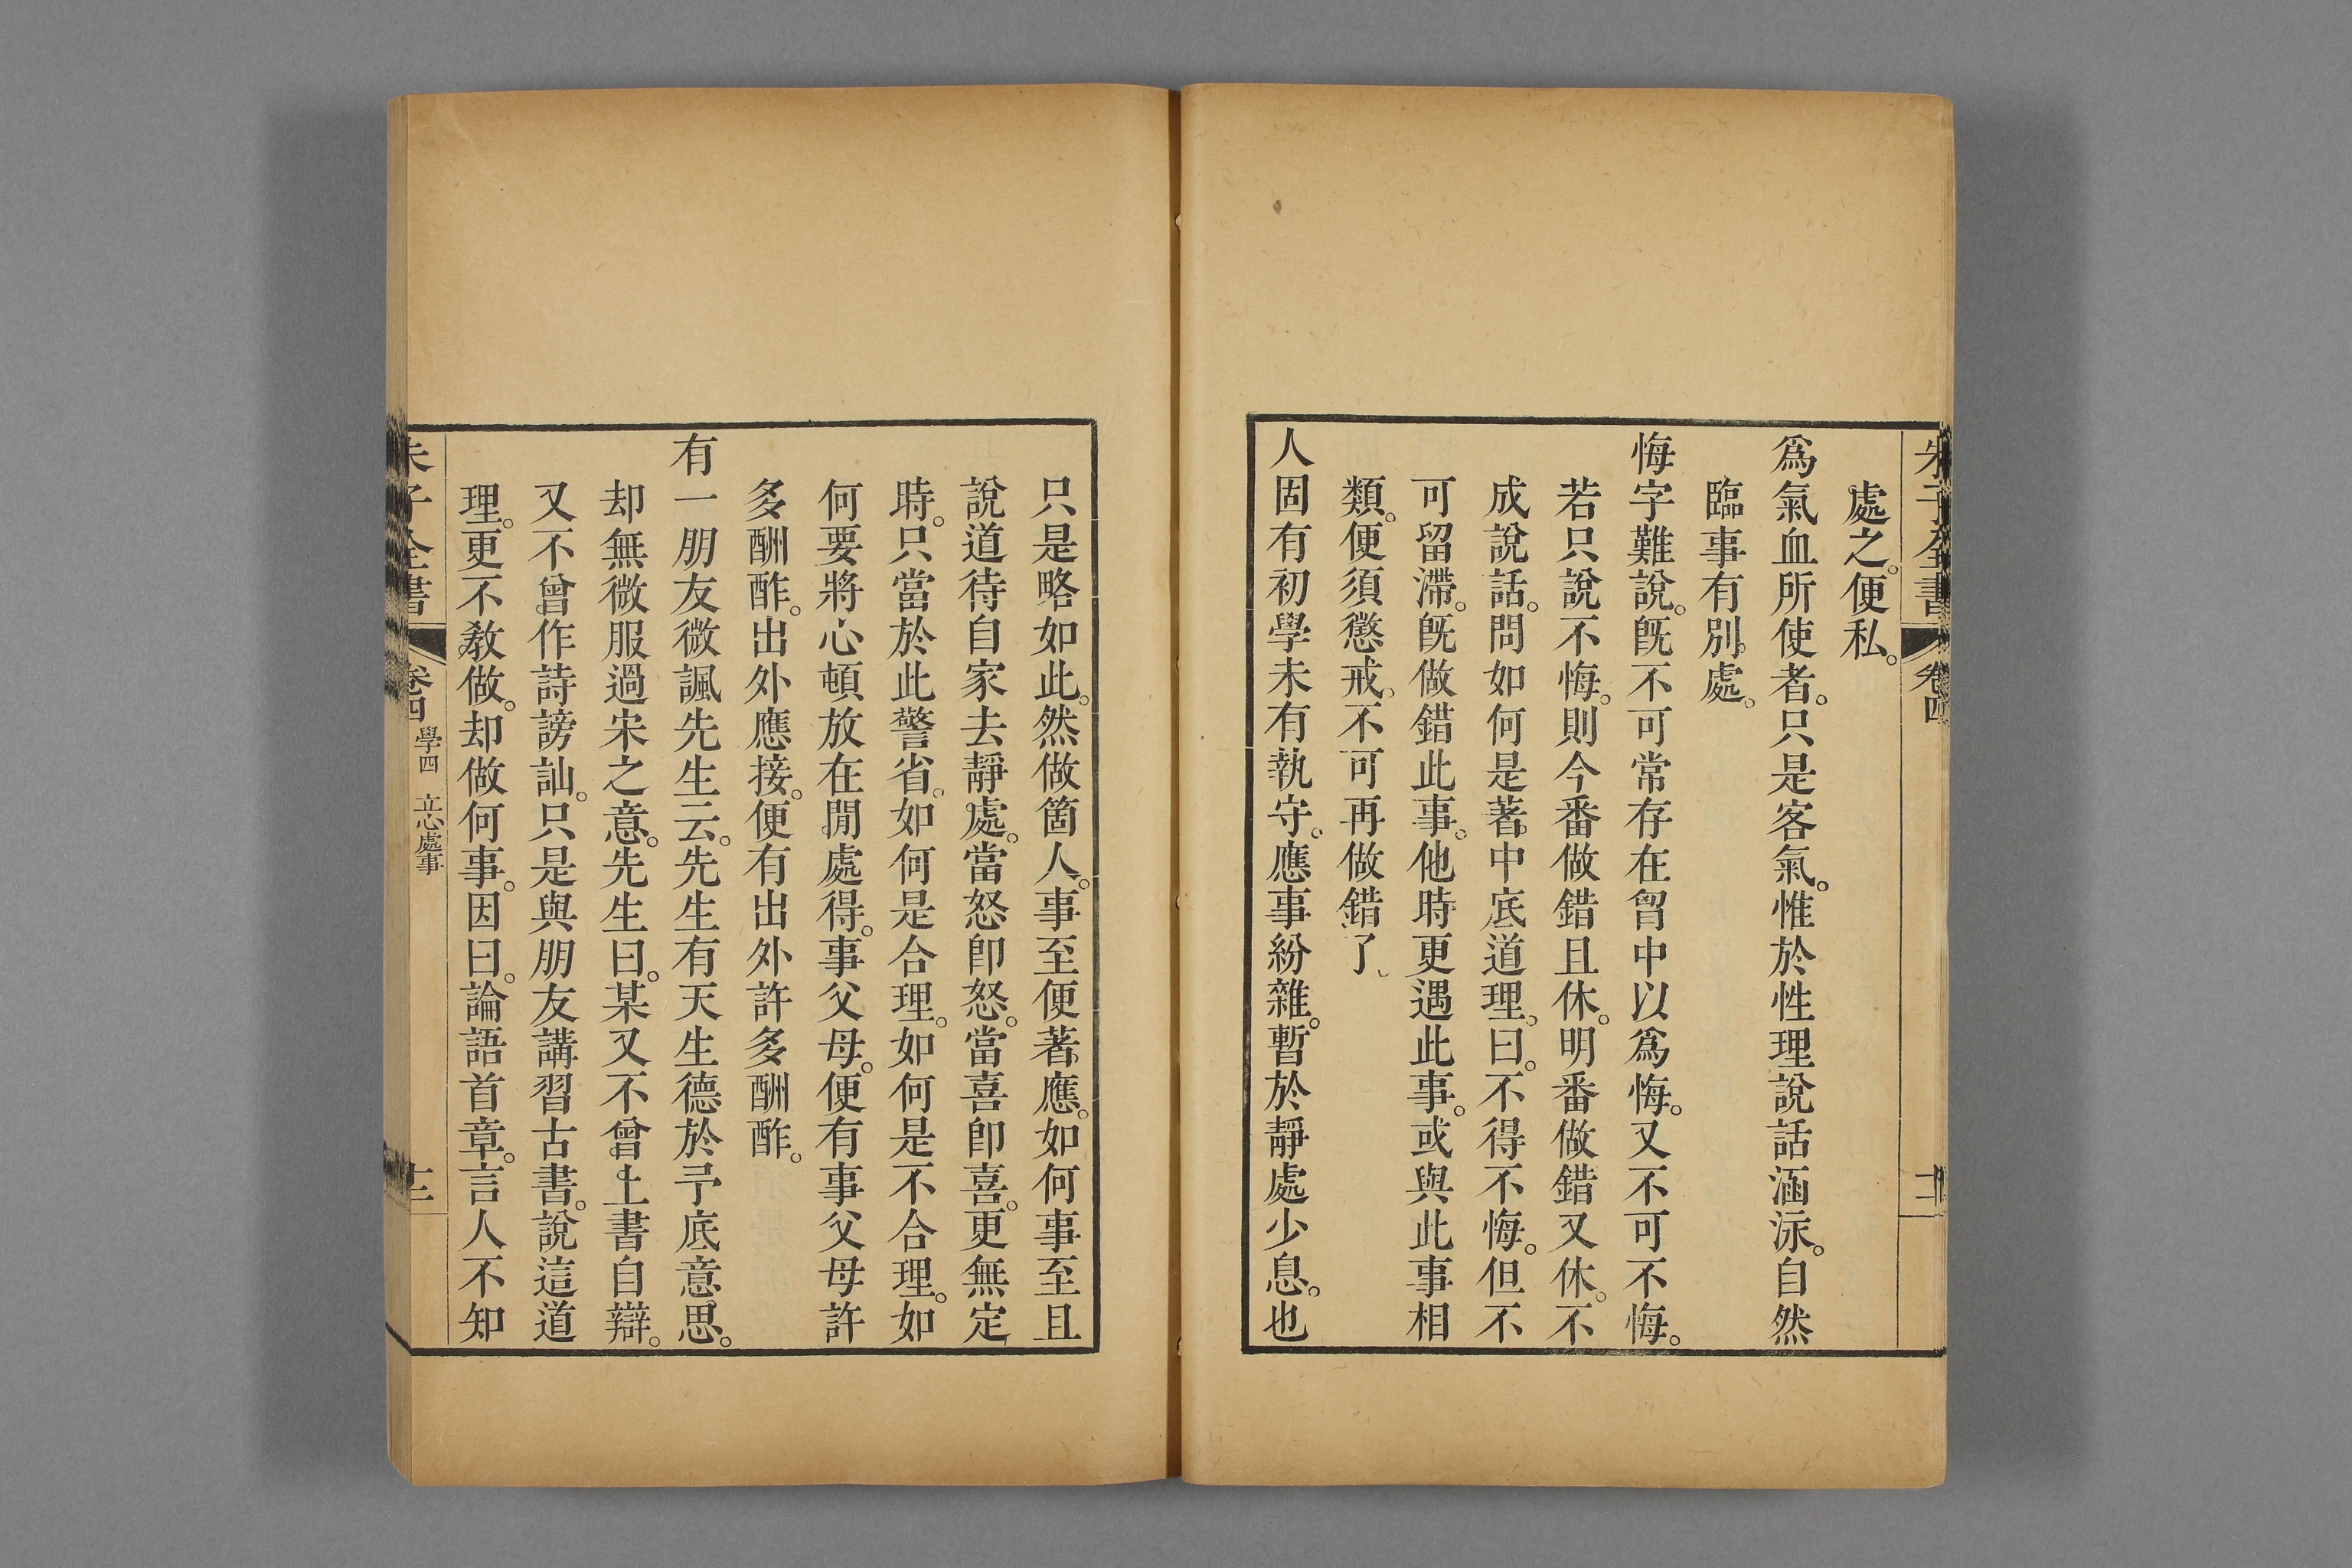 朱子全書 卷四
處之。便私。
爲氣血所使者。只是客氣。惟於性理說話涵泳。自然
臨事有別處。
悔字難說。旣不可常存在胷中以爲悔。又不可不悔。
若只說不悔。則今番做錯且休。明番做錯又休。不
成說話。問如何是著中底道理。曰。不得不悔。但不
可留滯。旣做錯此事。他時更遇此事。或與此事相
類。便須懲戒。不可再做錯了。
人固有初學未有執守。應事紛雜。暫於靜處少息。也
只是略如此。然做箇人。事至便著應。如何事至且
說道待自家去靜處。當怒卽怒。當喜卽喜。更無定
時。只當於此警省。如何是合理。如何是不合理。如
何要將心頓放在閒處得。事父母。便有事父母許
多酬酢。出外應接。便有出外許多酬酢。
有一朋友微諷先生云。先生有天生德於予底意思。
却無微服過宋之意。先生曰。某又不曾上書自辯。
又不曾作詩謗訕。只是與朋友講習古書。說這道
理。更不敎做。却做何事。因曰。論語首章。言人不知
朱子全書 卷四 學四 立心處事 十三